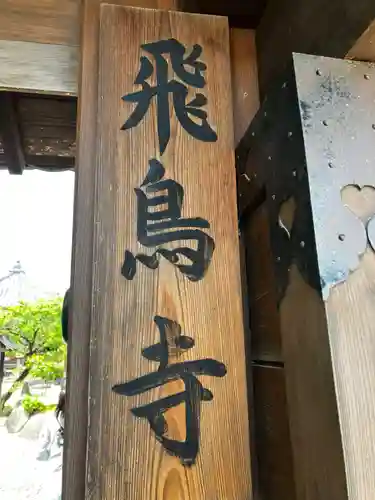 飛鳥寺